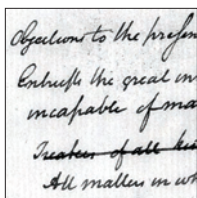 Objections to the presen
Entrusts the great in
incapable of ma
Treaties of all ki
All matters in wh